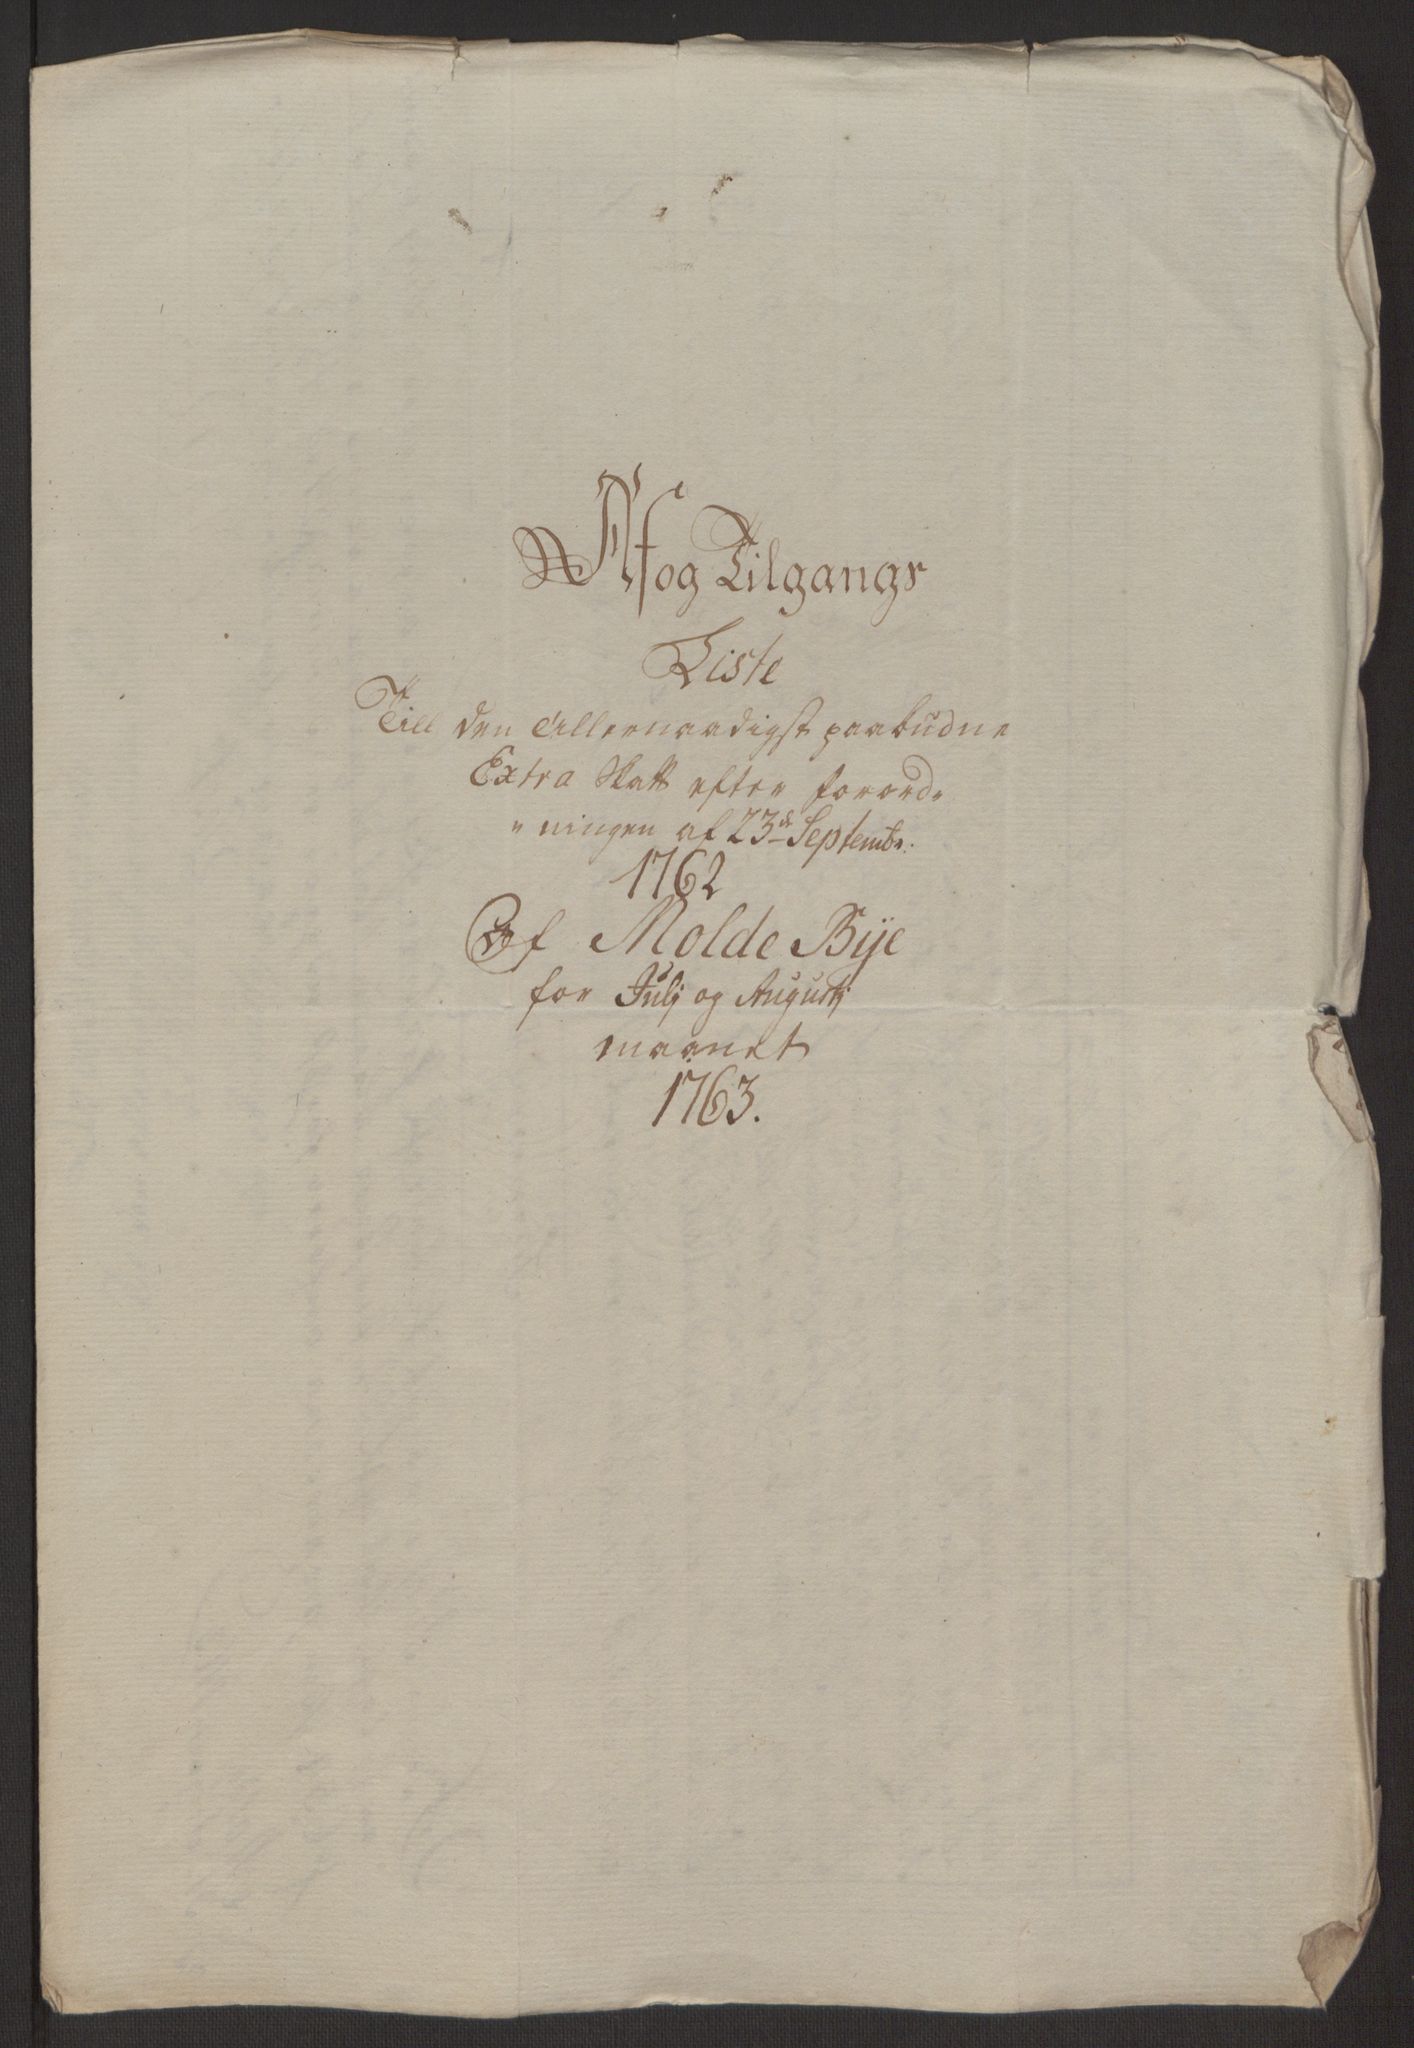 Af og Tilgangs
Liste
Till den Allernaadigst paabudne
Extra Skatt efter forord„
„ningen af 23de Septembr.
1762
Af Molde Bÿe
for Julj og Augustj
maanet
1763.